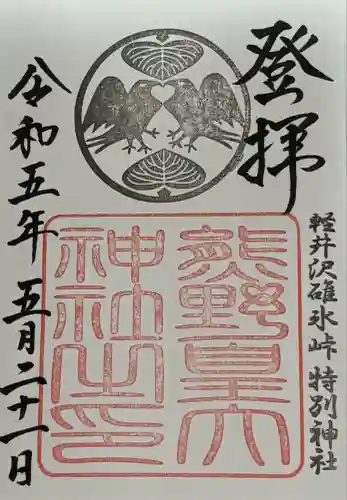 登拝
軽井沢碓氷峠 特別神社
熊野皇大
神社之印
令和五年 五月二十一日